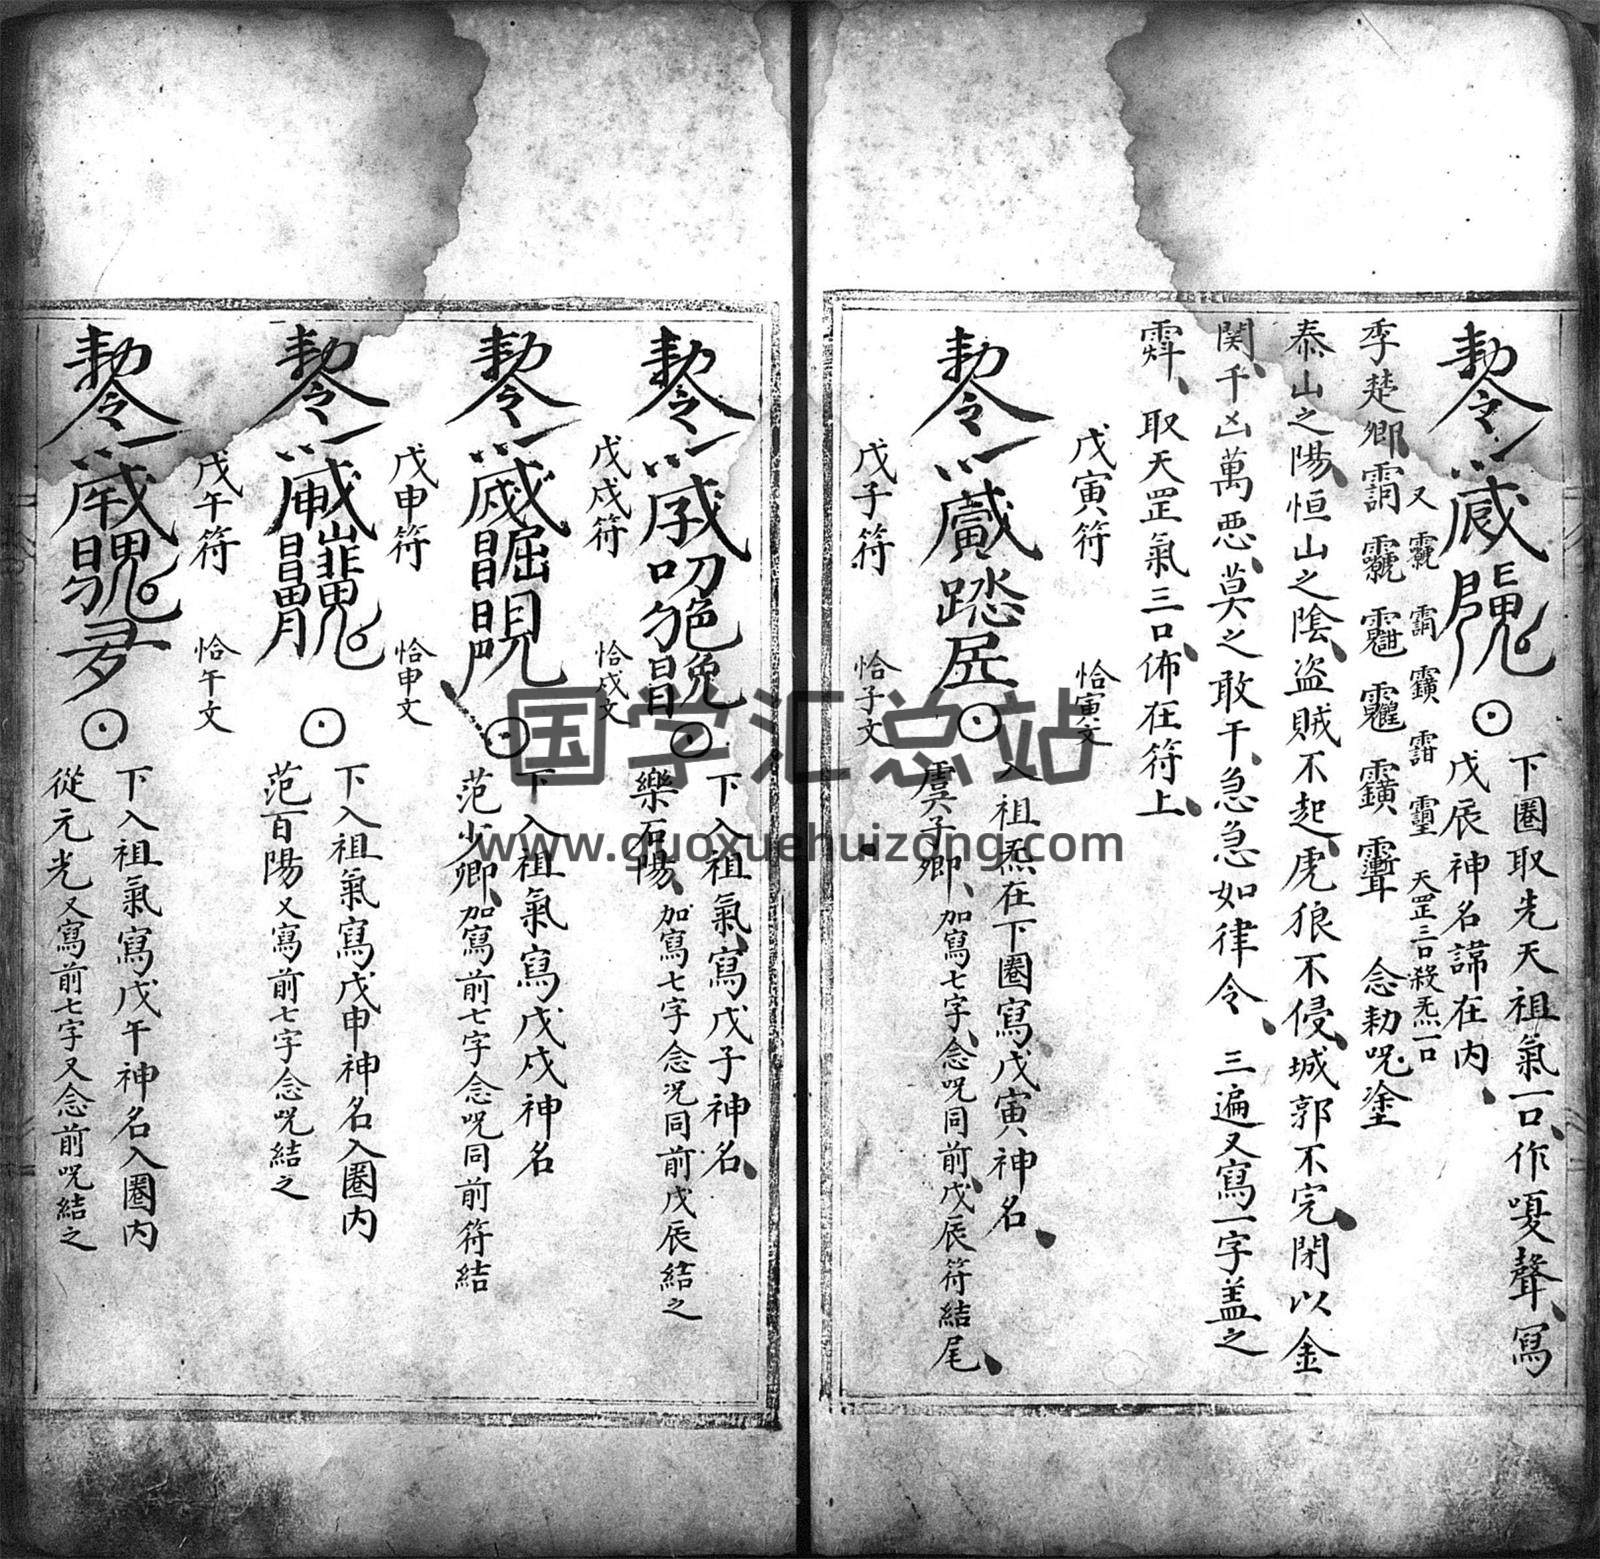 勅令
下圈取先天祖氣一口作嗄聲寫
戊辰神名諱在内
又
天罡三口殺炁一口
季楚卿
念勅咒塗
泰山之陽恒山之陰盜賊不起虎狼不侵城郭不完閉以金
関千凶萬惡莫之敢干急急如律令 三遍又寫一字盖之
取天罡氣三口佈在符上
戊寅符 恰寅文
勅令
入祖炁在下圈寫戊寅神名
虞子卿加寫七字念咒同前戊辰符結尾
戊子符 恰子文
勅令
下入祖氣寫戊子神名
樂石陽加寫七字念咒同前戊辰結之
戊戌符 恰戌文
勅令
下入祖氣寫戊戌神名
范少卿加寫前七字念咒同前符結
戊申符 恰申文
勅令
下入祖氣寫戊申神名入圈内
范百陽又寫前七字念咒結之
戊午符 恰午文
勅令
下入祖氣寫戊午神名入圈内
從元光又寫前七字又念前咒結之
国学汇总站
www.guoxuehuizong.com